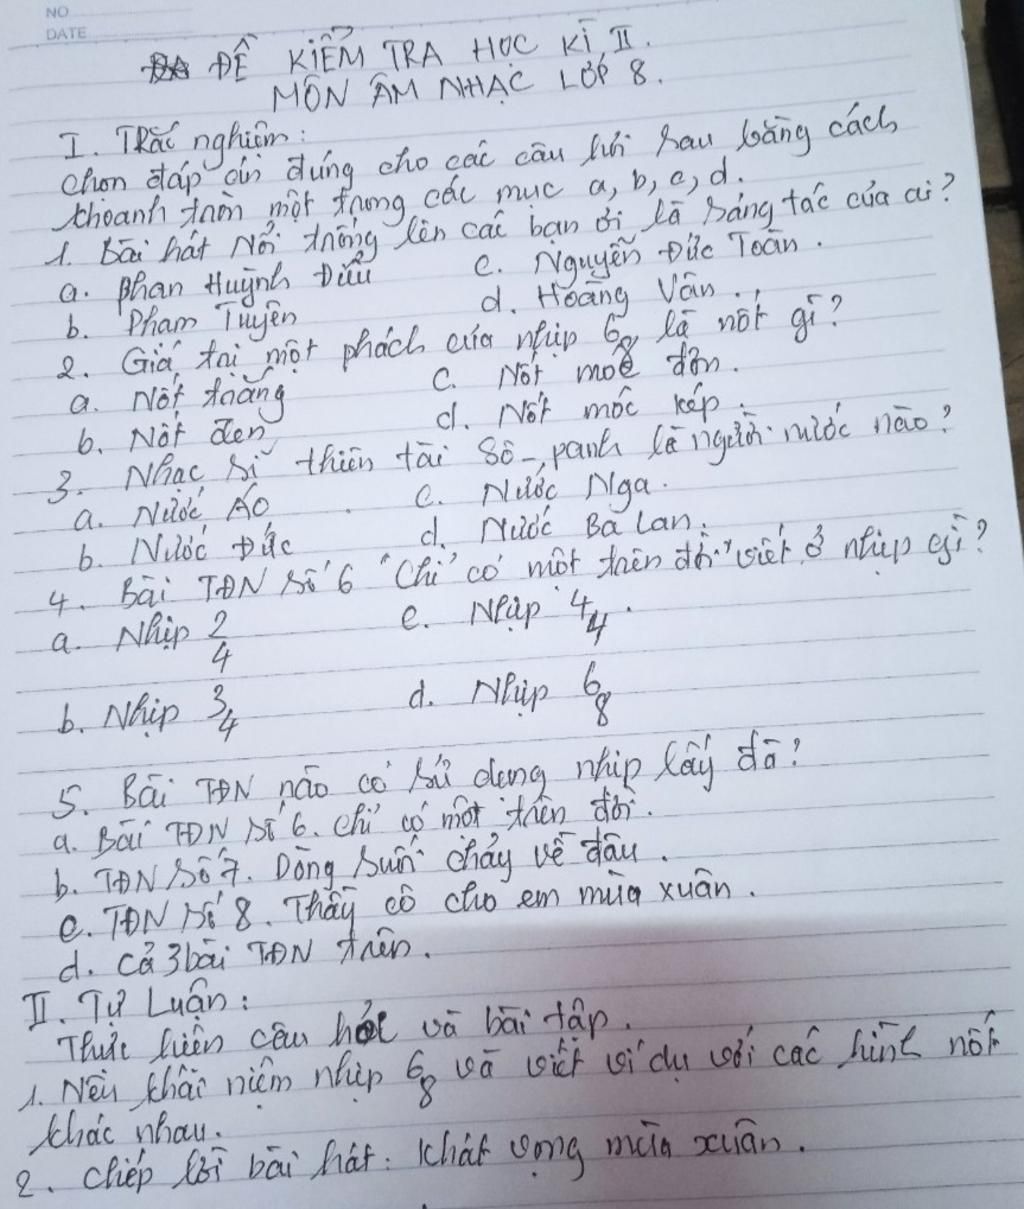 NO
DATE
ĐỀ KIỂM TRA HỌC KÌ II.
MÔN ÂM NHẠC LỚP 8.
I. Trắc nghiệm:
Chọn đáp án đúng cho các câu hỏi sau bằng cách
khoanh tròn một trong các mục a, b, c, d.
1. Bài hát Nổi trống lên các bạn ơi là sáng tác của ai?
a. Phan Huỳnh Điểu c. Nguyễn Đức Toàn.
b. Phạm Tuyên d. Hoàng Vân.
2. Giá trị một phách của nhịp 6/8 là nốt gì?
a. Nốt trắng c. Nốt móc đơn.
b. Nốt đen d. Nốt móc kép.
3. Nhạc sĩ thiên tài Sô-panh là người nước nào?
a. Nước Áo c. Nước Nga.
b. Nước Đức d. Nước Ba Lan.
4. Bài TĐN số 6 "Chỉ có một trên đời" viết ở nhịp gì?
a. Nhịp 2/4 c. Nhịp 4/4.
b. Nhịp 3/4 d. Nhịp 6/8
5. Bài TĐN nào có sử dụng nhịp lấy đà?
a. Bài TĐN số 6. Chỉ có một trên đời.
b. TĐN số 7. Dòng suối chảy về đâu.
c. TĐN số 8. Thầy cô cho em mùa xuân.
d. Cả 3 bài TĐN trên.
II. Tự Luận:
Thực hiện câu hỏi và bài tập.
1. Nêu khái niệm nhịp 6/8 và viết ví dụ với các hình nốt
khác nhau.
2. Chép lời bài hát: Khát vọng mùa xuân.